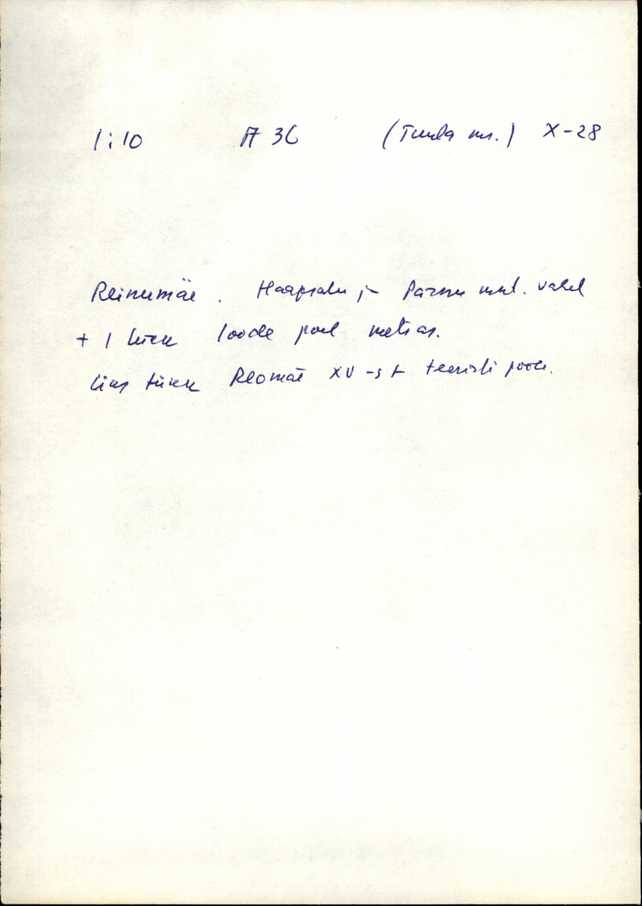 1:10 A 36 (Tunda mr.) X-28
Reinumäe. Haapsalu ja Pärnu mnt. vahel
+ 1 tükk loode pool metsas.
üks tükk Reomäe XV-st teeristi poole.